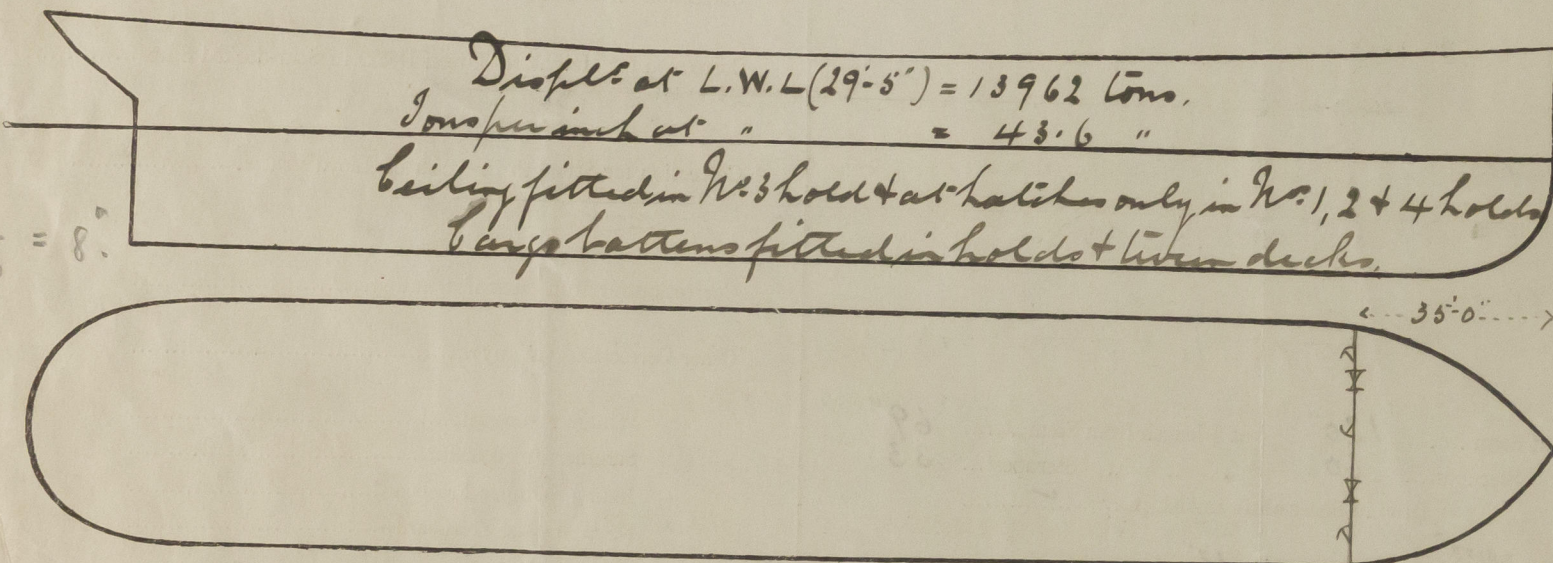 Displt at L.W.L (29'-5") = 13962 tons.
Tons per inch at " = 43.6 "
Ceiling fitted in No 3 hold & at hatches only in Nos 1, 2 & 4 holds
Cargo battens fitted in holds & tween decks.
= 8.
35'-0"